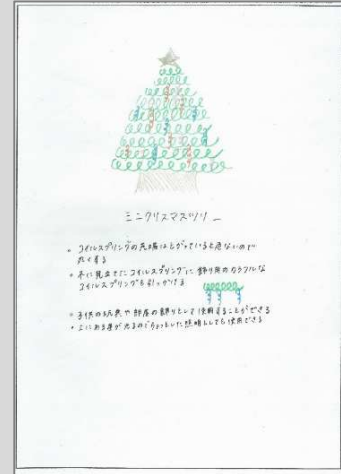 ミニクリスマスツリー
• コイルスプリングの先端はとがっていると危ないので
丸くする
• 木に見立てたコイルスプリングに飾り用のカラフルな
コイルスプリングを引っかける
• 子供の玩具や部屋の飾りとして使用することができる
• 上にある星が光るのでちょっとした照明としても使用できる